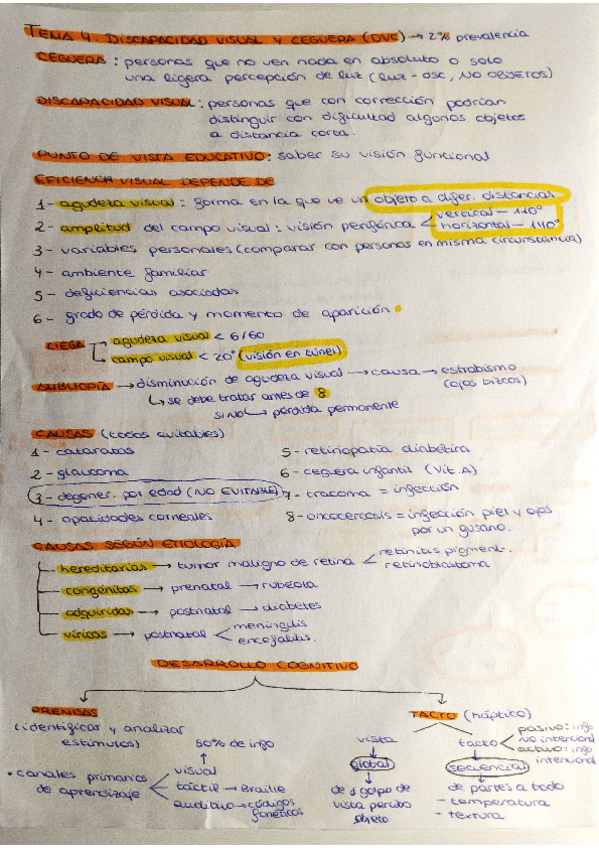 TEMA 4. DISCAPACIDAD VISUAL Y CEGUERA (DVC) → 2% prevalencia
CEGUERA: personas que no ven nada en absoluto o solo
una ligera percepción de luz (luz-osc, NO OBJETOS)
DISCAPACIDAD VISUAL: personas que con corrección podrían
distinguir con dificultad algunos objetos
a distancia corta.
PUNTO DE VISTA EDUCATIVO: saber su visión funcional
EFICIENCIA VISUAL DEPENDE DE
1- agudeza visual: forma en la que ve un objeto a difer. distancias
2- amplitud del campo visual: visión periférica < vertical - 110°
horizontal - 140°
3- variables personales (comparar con personas en misma circunstancia)
4- ambiente familiar
5- deficiencias asociadas
6- grado de pérdida y momento de aparición
CIEGA agudeza visual < 6/60
campo visual < 20° (visión en túnel)
AMBLIOPÍA → disminución de agudeza visual → causa → estrabismo
(ojos bizcos)
↳ se debe tratar antes de 8
si no ↳ pérdida permanente
CAUSAS (todas evitables)
1- cataratas
2- glaucoma
3- degener. por edad (NO EVITABLE)
4- opacidades corneales
5- retinopatía diabética
6- ceguera infantil (Vit. A)
7- tracoma = infección
8- oncocercosis = infección piel y ojos
por un gusano.
CAUSAS SEGÚN ETIOLOGÍA
hereditarias → tumor maligno de retina < retinitis pigment.
retinoblastoma
congénitas → prenatal → rubeola
adquiridas → postnatal → diabetes
víricas → postnatal < meningitis
encefalitis.
DESARROLLO COGNITIVO
PREMISAS
(identificar y analizar
estímulos)
80% de info
• canales primarios
de aprendizaje
visual
táctil → Braille
auditivo → códigos
fonéticos
TACTO (háptico)
vista
global
de 1 golpe de
vista percibo
objeto
tacto < pasivo: info
no intencional
activo: info
intencional
secuencial
de partes a todo
- temperatura
- textura